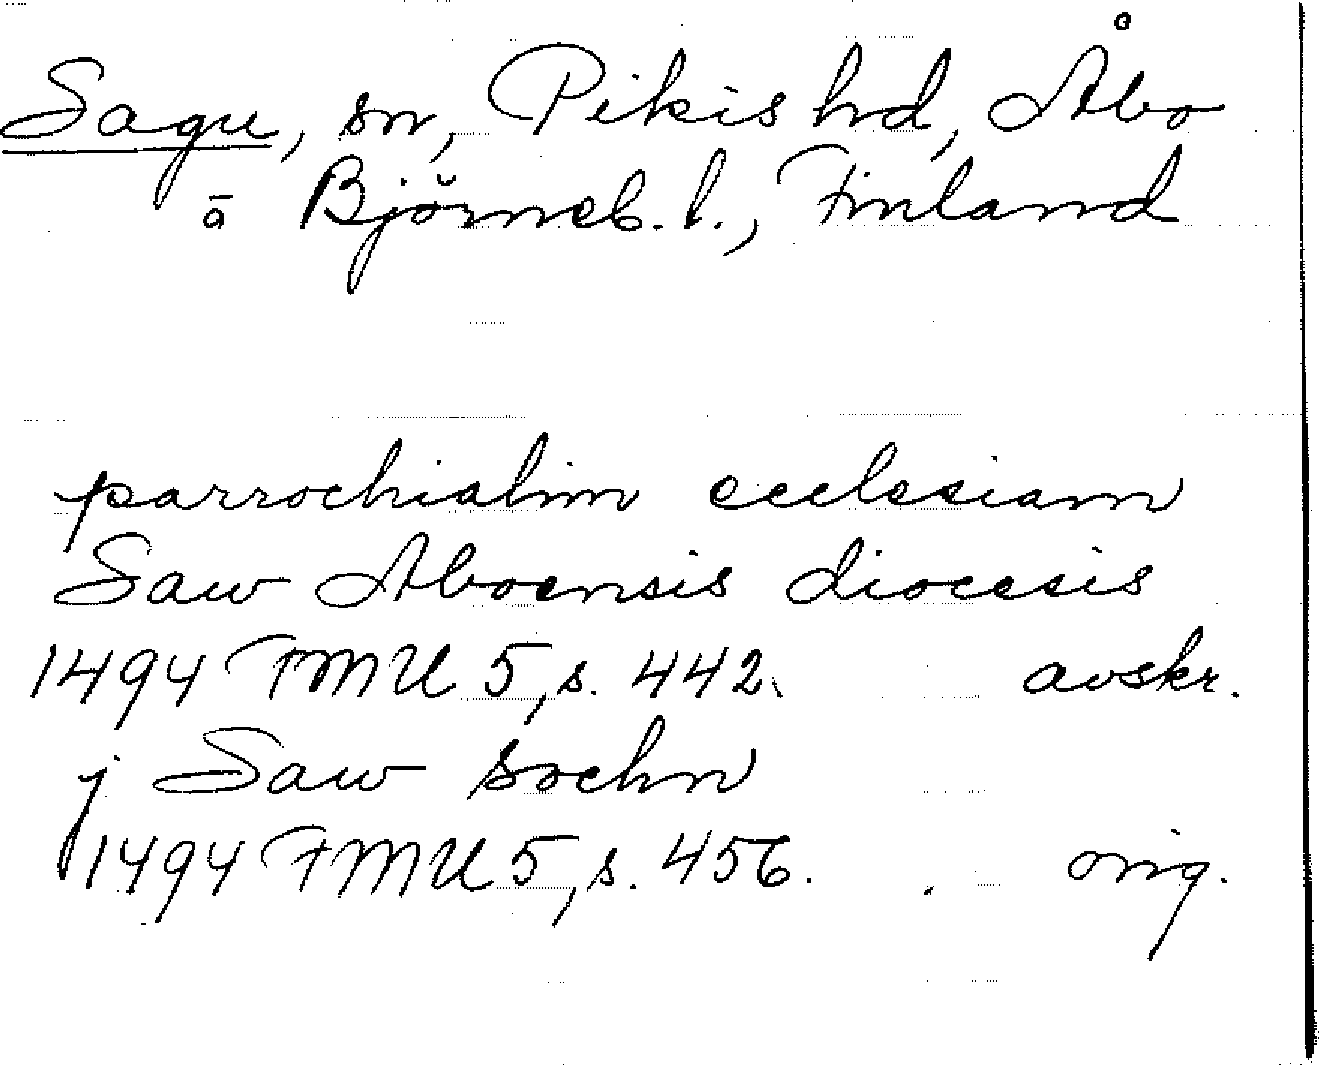 Sagu, sn, Pikis hd, Åbo
o Björneb. l., Finland
parrochialim ecclesiam
Saw Aboensis diocesis
1494 FMU 5, s. 442. avskr.
j Saw sochn
1494 FMU 5, s. 456. orig.